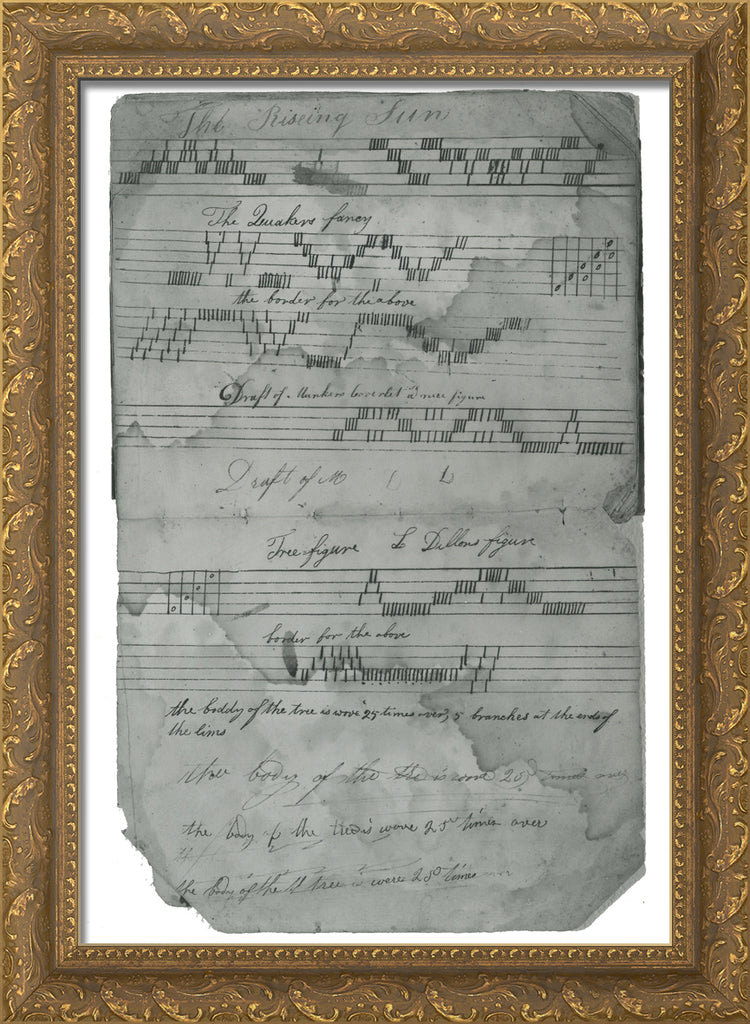 The Riseing Sun
The Quakers fancy
the border for the above
Draft of Coverlet a nice figure
Draft of M L
Tree=figure L Dillons figure
border for the above
the boddy of the tree is wove 25 times over, 5 branches at the ends of
the lims
the body of the tre is wove 25 times over
the body of the tree is wove 25 times over
the body of the tree is wove 25 times